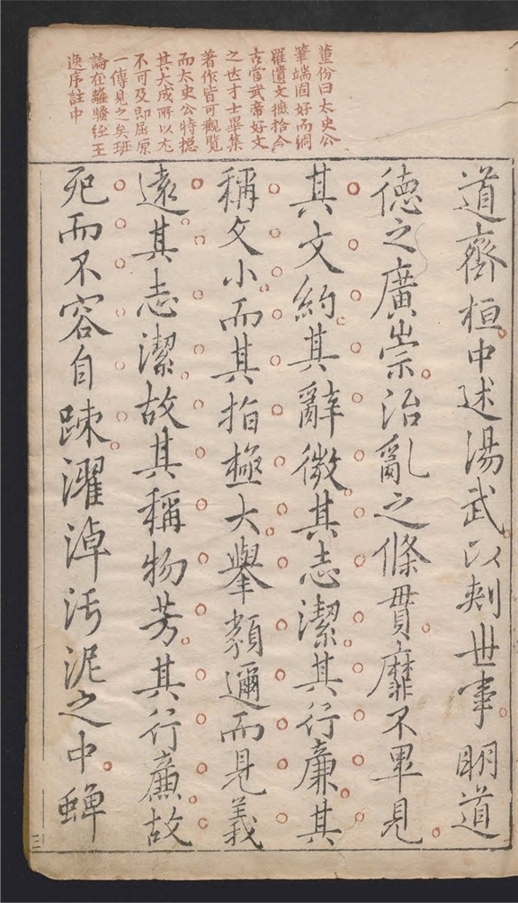 董份曰太史公
筆端固好而網
羅遺文摭拾今
古當武帝好文
之世才士畢集
著作皆可觀覽
而太史公特總
其大成所以尤
不可及即屈原
一傳見之矣班
論在離騷經王
逸序註中
道齊桓中述湯武以刺世事明道
德之廣崇治亂之條貫靡不畢見
其文約其辭微其志潔其行廉其
稱文小而其指極大舉類邇而見義
遠其志潔故其稱物芳其行廉故
死而不容自疎濯淖污泥之中蟬
三